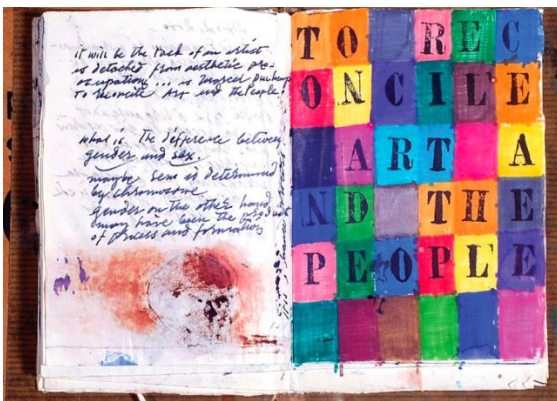 it will be the Task of an artist
as detached from aesthetic pre-
occupations ... as Marcel Duchamp
To reconcile Art and the People!
what is The difference between
gender and sex.
maybe is determined
by chromosome
gender on the other hand
may have been the product
of process and formation
TO REC
ONCILE
ART A
ND THE
PEOPLE